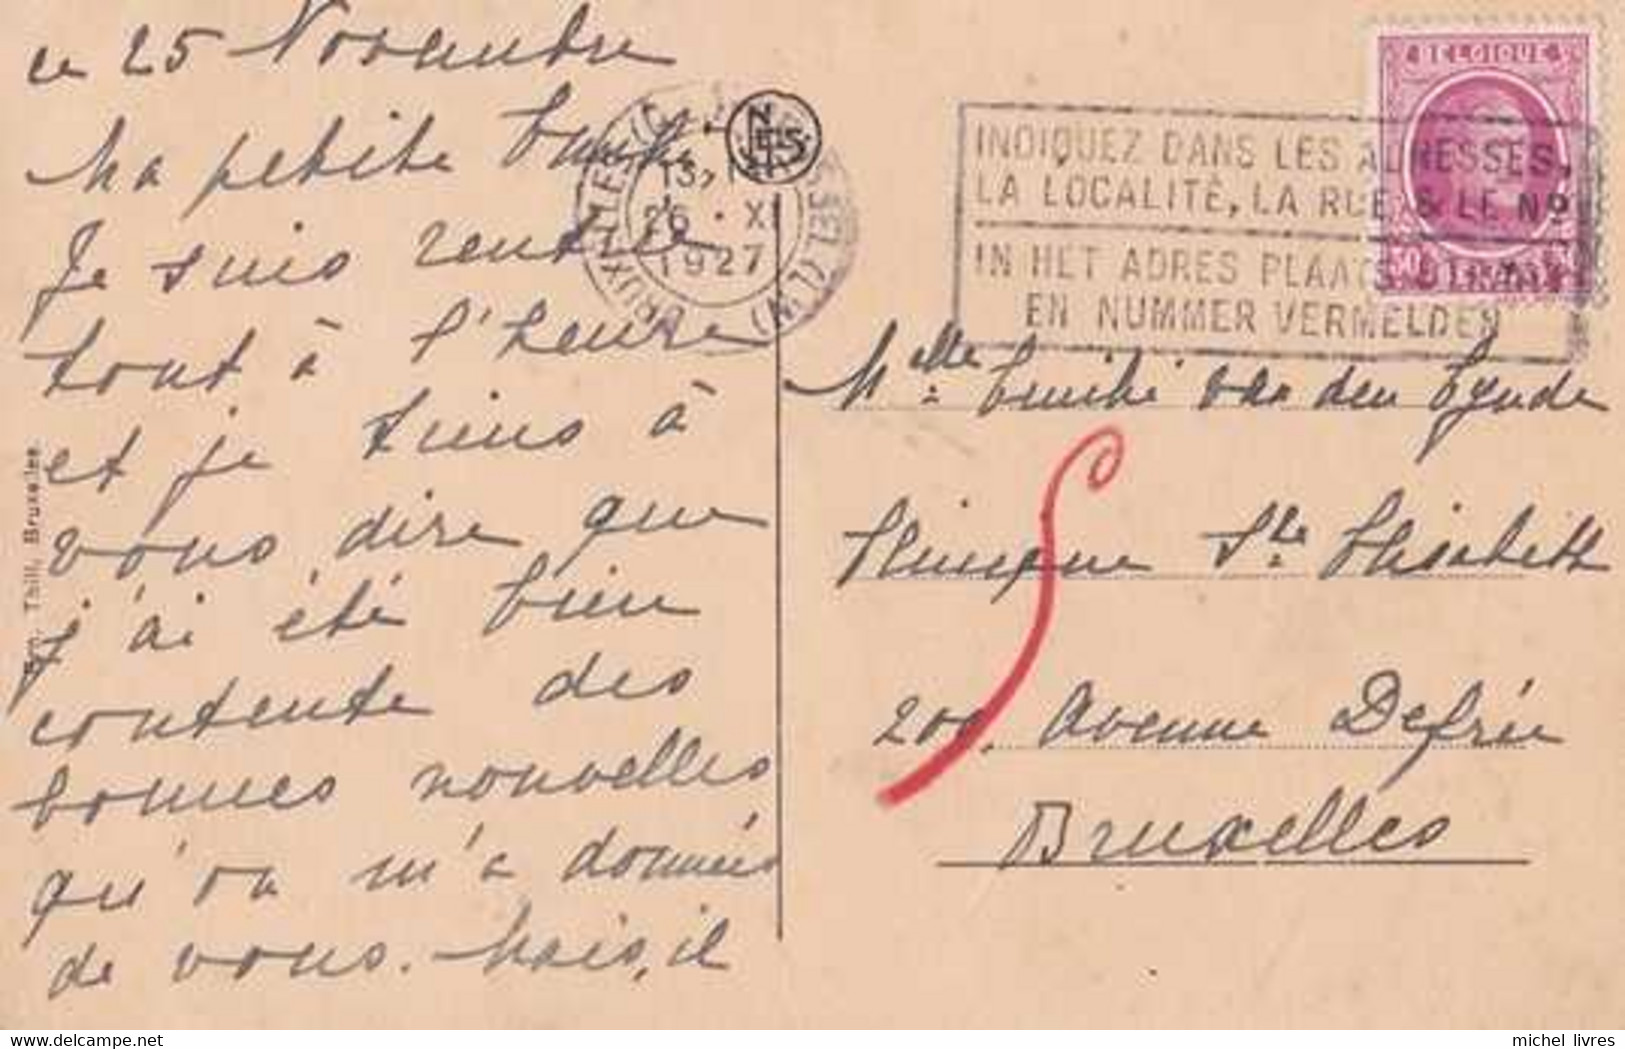 ce 25 Novembre
Ma petite
Je suis rentrée
tout à l'heure
et je tiens à
vous dire que
j'ai été bien
contente des
bonnes nouvelles
qu'on m'a données
de vous. Mais, il
Thill, Bruxelles.
NELS
13
26 · XI
1927
INDIQUEZ DANS LES ADRESSES,
LA LOCALITÉ, LA RUE & LE Nº
IN HET ADRES PLAATS, STRAAT
EN NUMMER VERMELDEN
BELGIQUE
Melle van den Eynde
Clinique Ste Elisabeth
200, Avenue Defrée
Bruxelles
delcampe.net
michel_livres